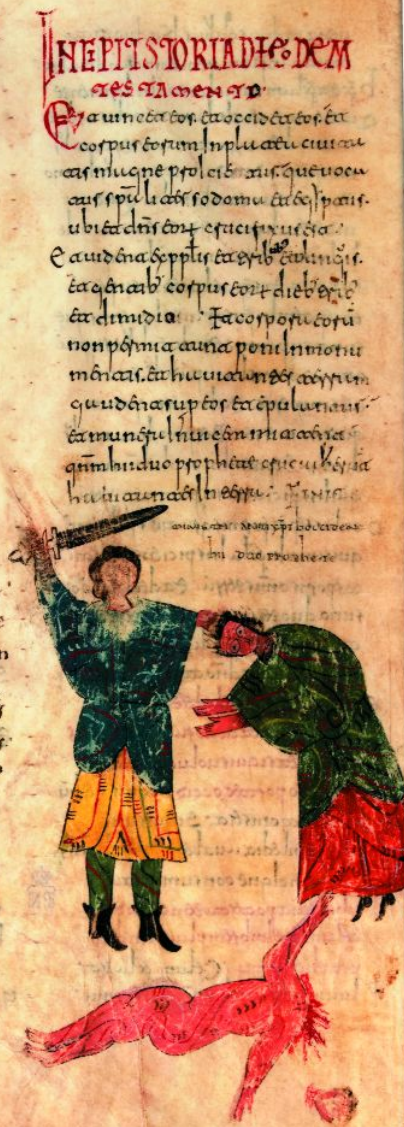 INEPITSTORIA DE EODEM
TESTAMENTO
Et uincet eos. et occidet eos. et
corpus eorum In platea ciuita
tis magne proiciet que uoca
tur spualis sodoma et egiptus.
ubi et dns eorum crucifixus est.
Et uident de pplis et trib et linguis.
et gentib corpus eorum dieb trib
et dimidio. Et corpora eorum
non permittat poni In monu
mentis. et hauitantes terram
gaudent super eos et epulantur.
et munera Inuicem mittent
qnm hii duo prophete cruciaberunt
hauitantes In terra. FINIT
ubi occidet
hii duo prophete